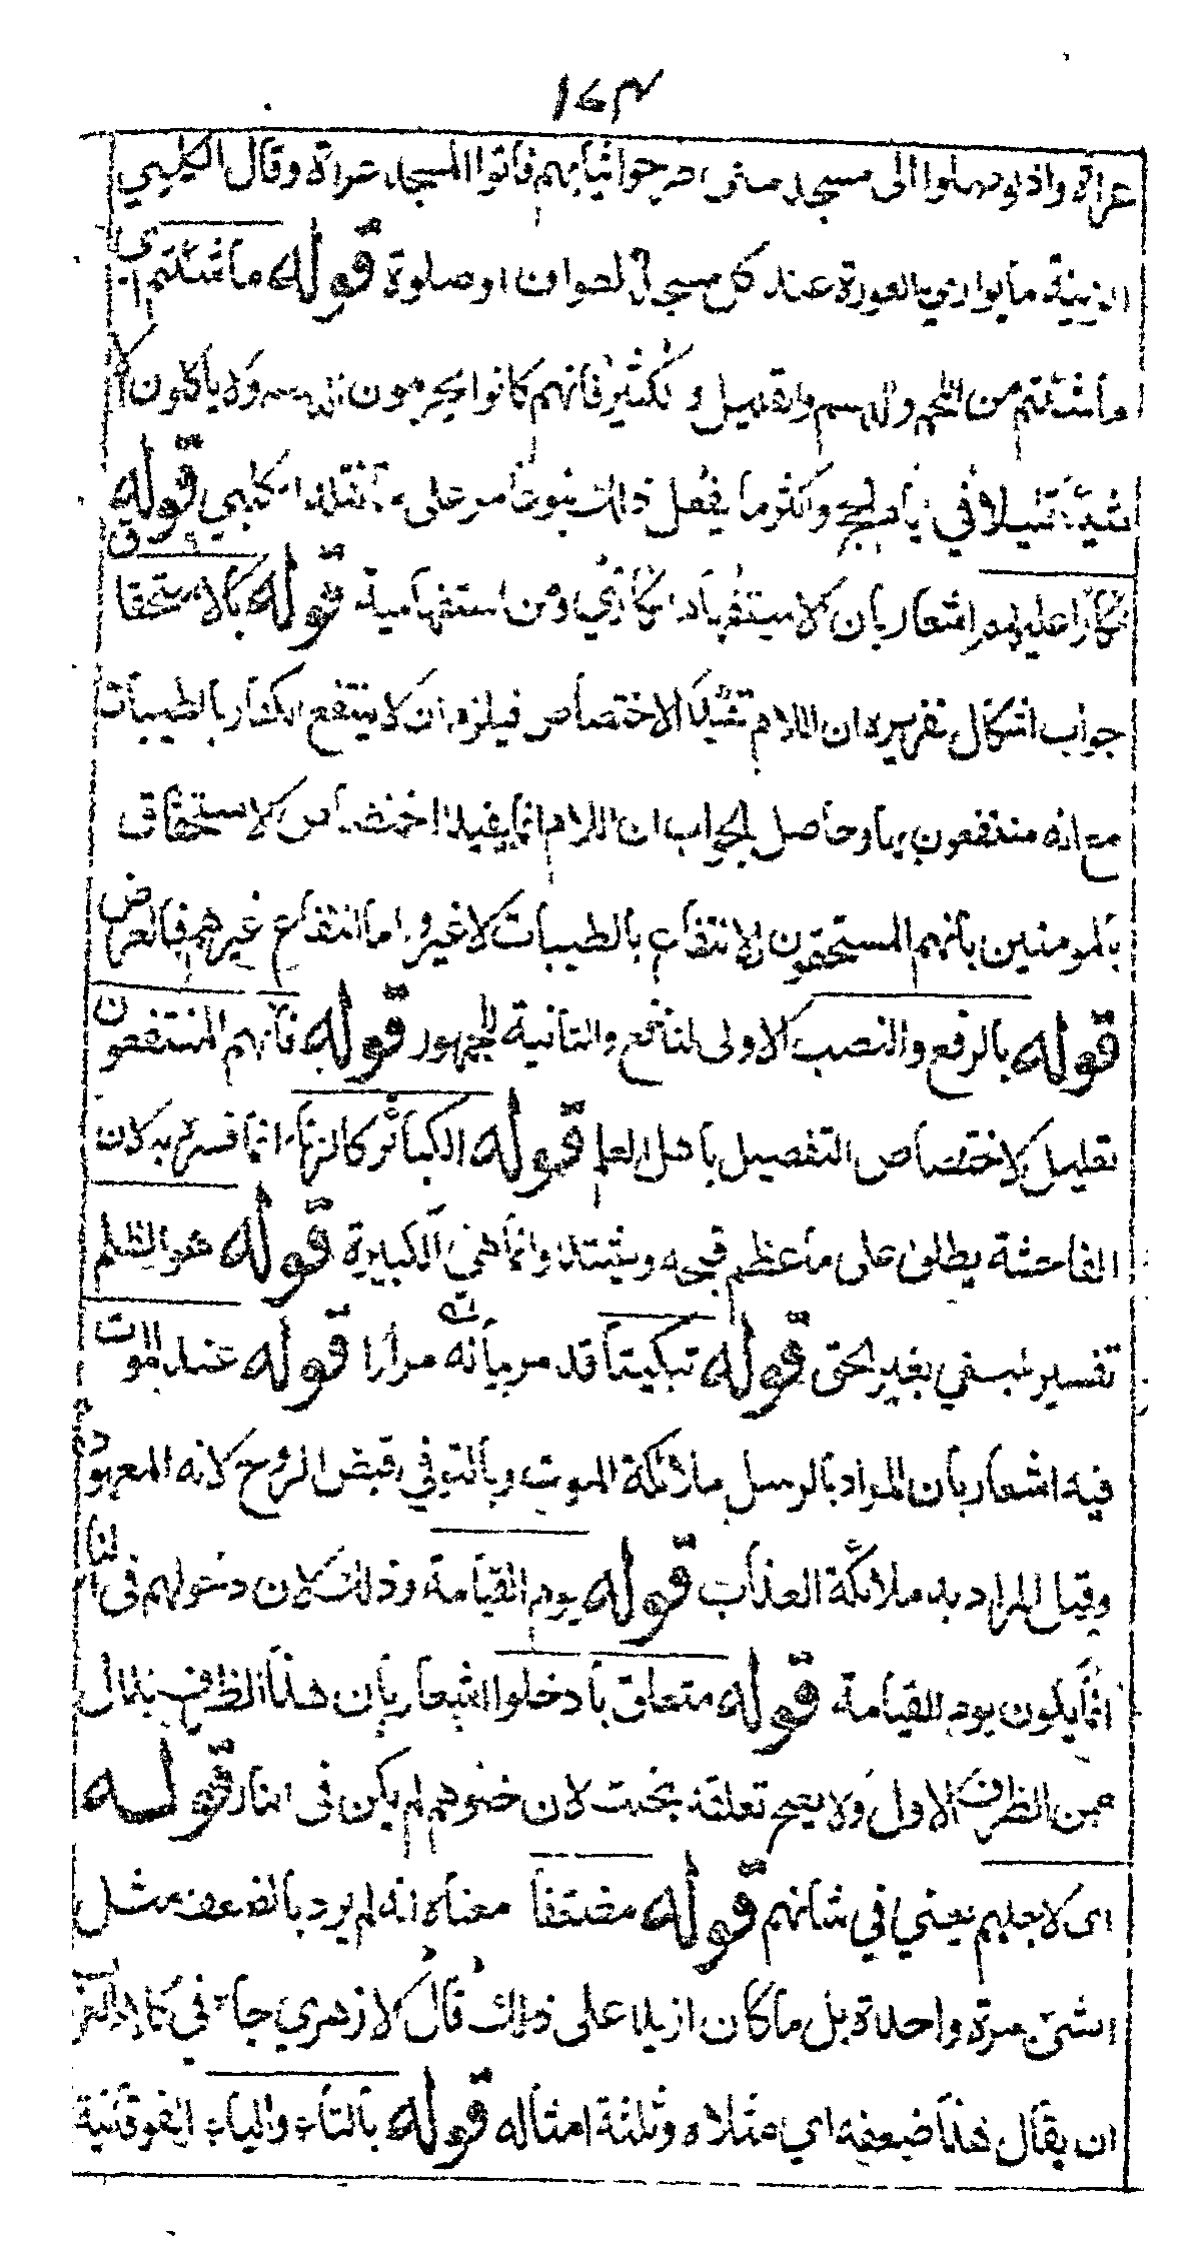 ١٤٣
عراة واذا وصلوا الى مسجد منى طرحوا ثيابهم فاتوا المسجد عراة وقال الكلبي
الزينة ما يوارى العورة عند كل مسجد لطواف او صلوة قوله ما شئتم اي
ما شئتم من اللحم والدسم وتقليل و تكثير فانهم كانوا يحرمون الدسم ولا ياكلون الا
شيئا قليلا في ايام الحج واكثر ما يفعل ذلك بنو عامر على ما نقله الكلبي قوله
انكارا عليهم اشعار بان الاستفهام انكاري ومن استفهامية قوله بالاستحقاق
جواب اشكال تقريره ان اللام تفيد الاختصاص فيلزم ان لا ينتفع الكفار بالطيبات
مع انه منتفعون بها وحاصل الجواب ان اللام انما يفيد اختصاص الاستحقاق
بالمومنين بانهم المستحقون للانتفاع بالطيبات لا غير واما انتفاع غيرهم فبالعرض
قوله بالرفع والنصب الاولى لنافع والثانية للجمهور قوله فانهم المنتفعون
تعليل لاختصاص التفصيل باهل العلم قوله الكبائر كالزنا انما فسر به لان
الفاحشة يطلق على ما عظم قبحه وشيئته وانما هي الكبيرة قوله هو الظلم
تفسير للبغي بغير الحق قوله تبكيتا قد مر بيانه مرارا قوله عند الموت
فيه اشعار بان المراد بالرسل ملائكة الموت وبالتوفي قبض الروح لانه المعهود
وقيل المراد به ملائكة العذاب قوله يوم القيامة وذلك لان دخولهم فى النار
انما يكون يوم القيامة قوله متعلق بادخلوا اشعار بان هذا الظرف بدل
من الظرف الاول ولا يصح تعلقه بخلت لان خلوهم لم يكن فى النار قوله
اى لاجلهم يعني في شانهم قوله مضعفا معناه انه لم يرد بالضعف مثل
الشئ مرة واحدة بل ما كان ازيد على ذلك قال الازهري جاء في كلام العرب
ان يقال هذا ضعفه اي مثلاه وثلثة امثاله قوله بالتاء والياء الفوقانية